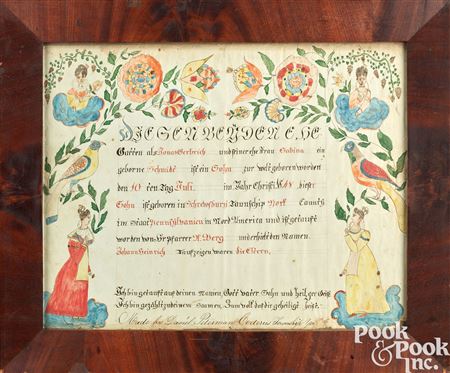 DIESEN BEYDEN EHE
Gatten als Jonas Gerbrich und seiner ehe Frau Sabina ein
geborne Schmidt ist ein Sohn zur welt geboren worden
den 10 ten Tag Juli im Jahr Christi dieser
Sohn ist geboren in Schrewsbury Taunschip York County
im Staat Pennsylvanien in Nord America und ist getauft
worden von Hr pfarrer Berg und erhielt den Namen
Johann Heinrich Taufzeigen waren die Eltern.
Ich bin getauft auf deinen Namen, Gott vater Sohn und heilger Geist
Ich bin gezählt zu deinem Saamen, Zum volk das dir geheiligt heist.
Made for Daniel Peterman Codorus
Pook
& Pook
Inc.